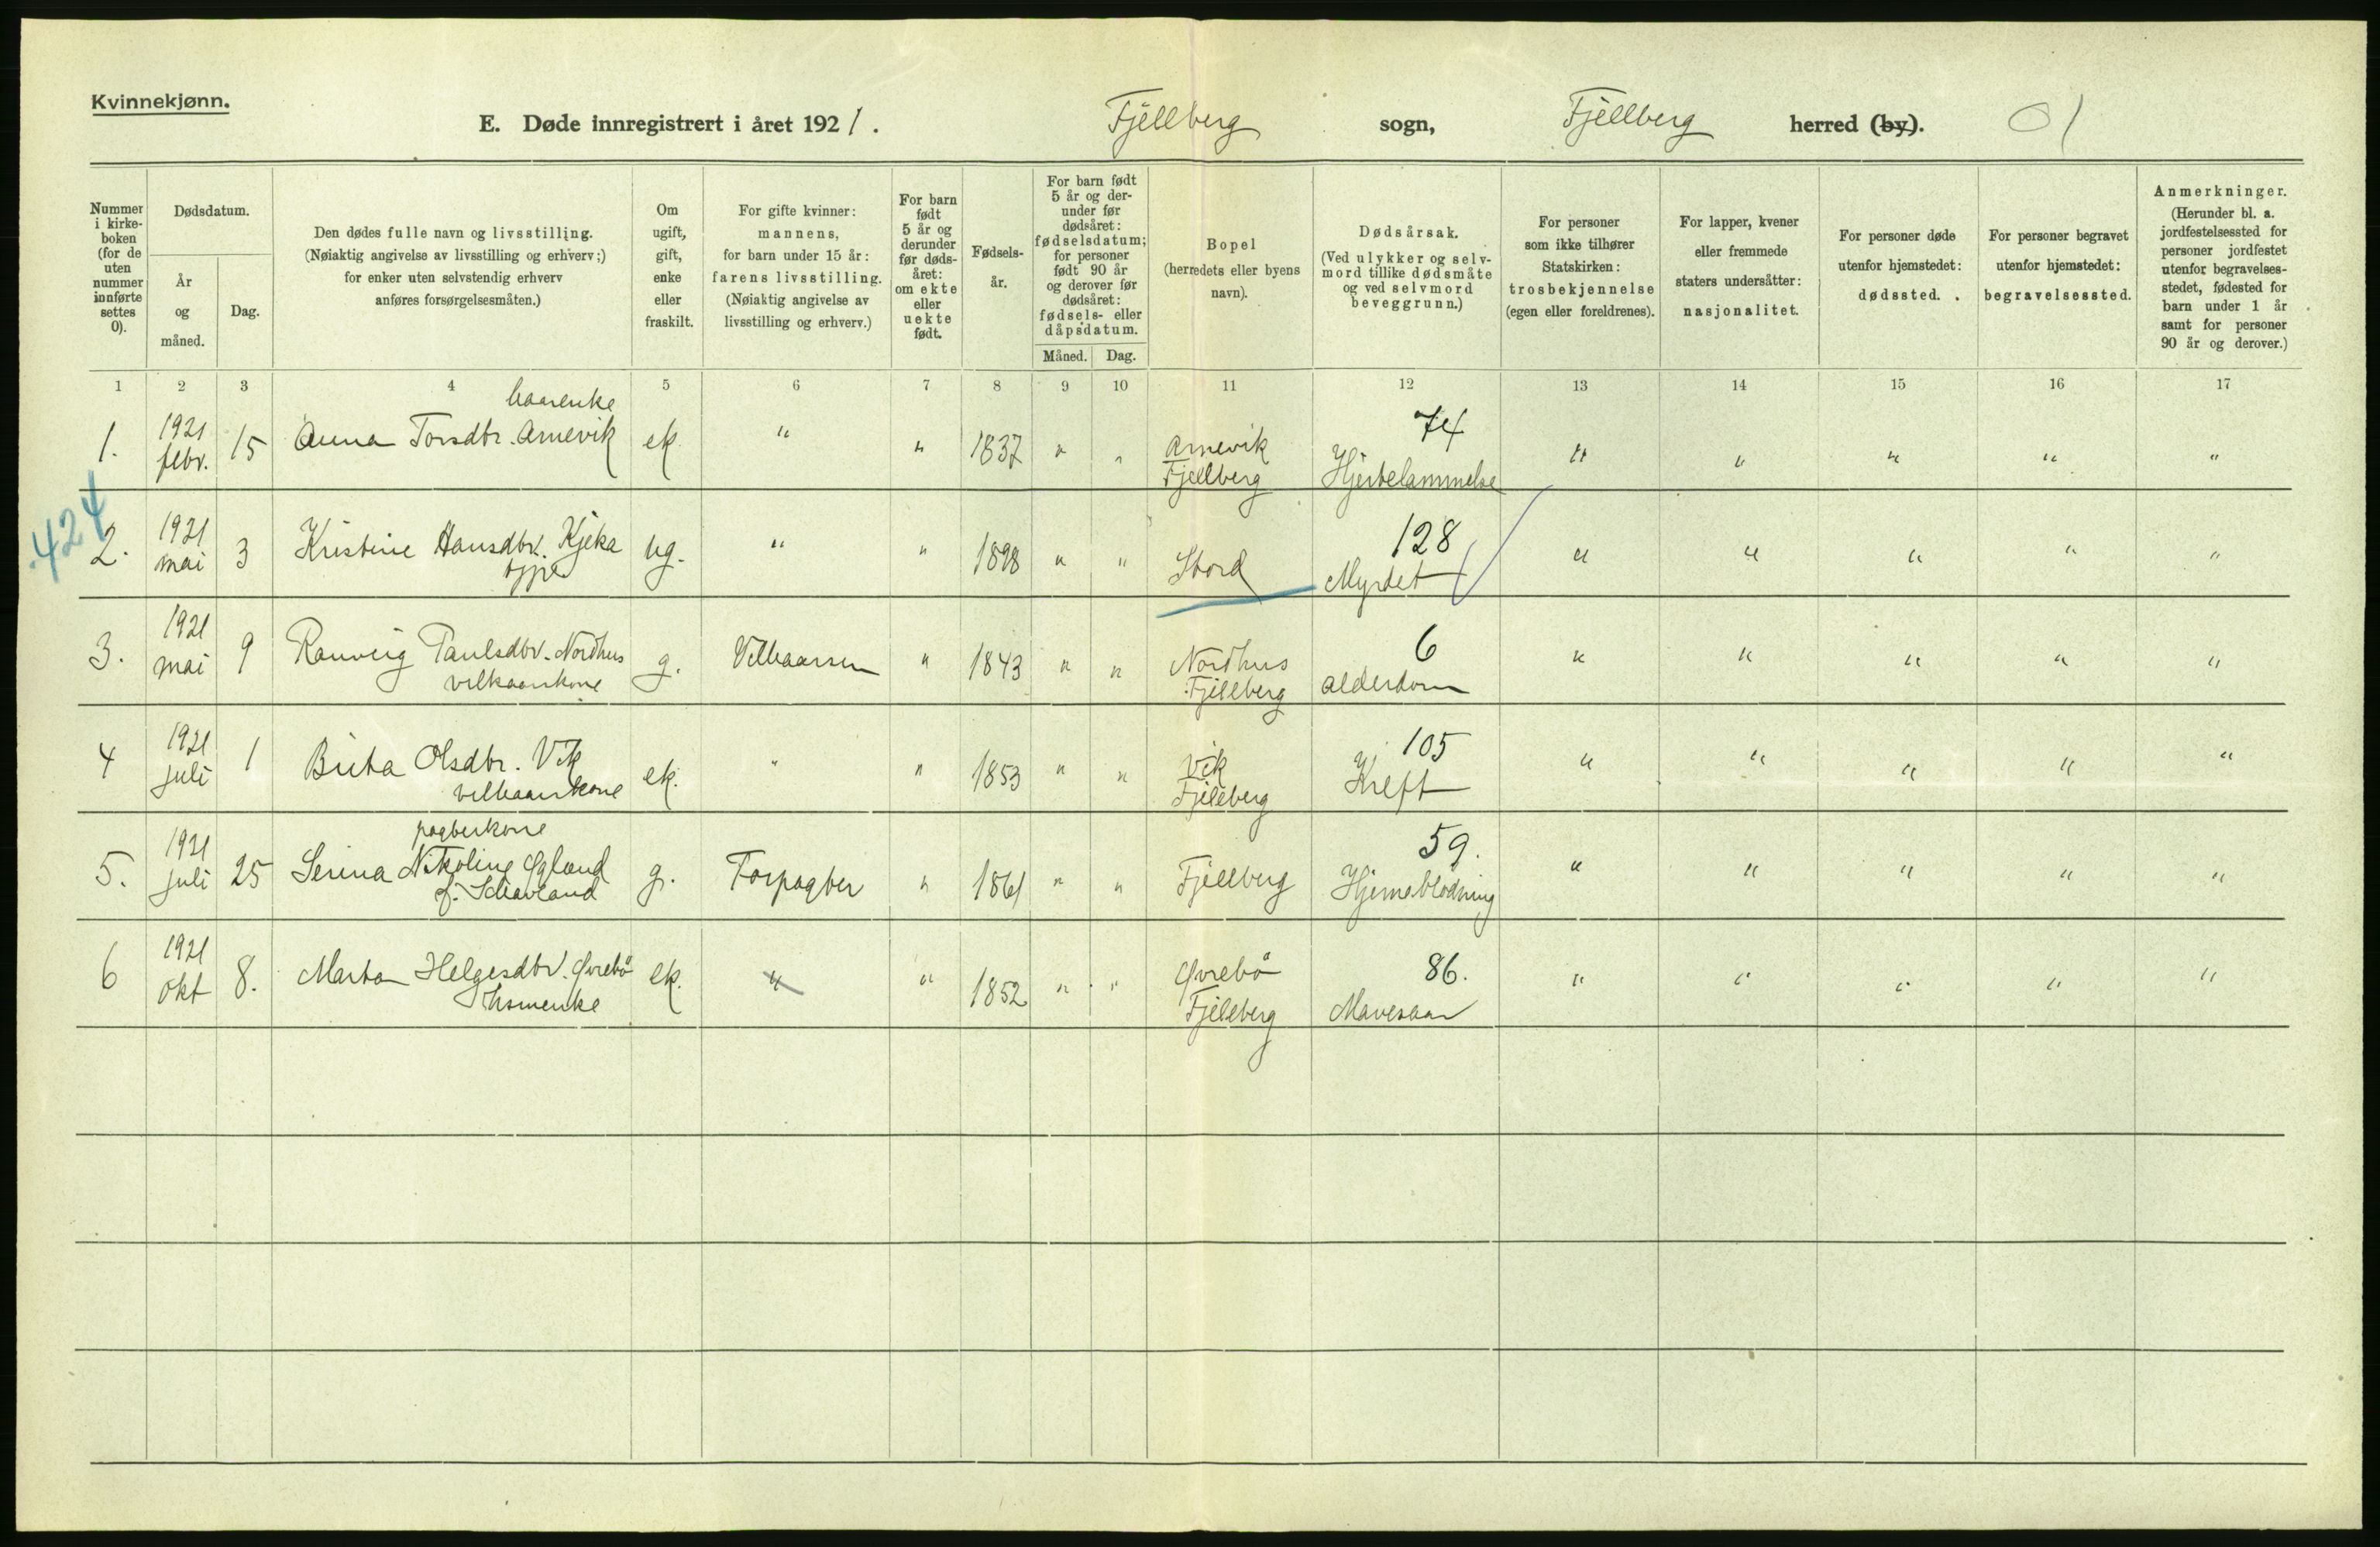 Kvinnekjønn.
E. Døde innregistrert i året 1921. Fjellberg sogn, Fjellberg herred (by). 01
Nummer i kirke- boken (for de uten nummer innførte settes 0).
Dødsdatum.
År og måned.
Dag.
Den dødes fulle navn og livsstilling.
(Nøiaktig angivelse av livsstilling og erhverv;)
for enker uten selvstendig erhverv
anføres forsørgelsesmåten.)
Om ugift, gift, enke eller fraskilt.
For gifte kvinner:
mannens,
for barn under 15 år:
farens livsstilling.
(Nøiaktig angivelse av
livsstilling og erhverv.)
For barn født 5 år og derunder før døds- året: om ekte eller uekte født.
Fødsels- år.
For barn født 5 år og der- under før dødsåret: fødselsdatum; for personer født 90 år og derover før dødsåret: fødsels- eller dåpsdatum.
Måned. Dag.
Bopel
(herredets eller byens
navn).
Dødsårsak.
(Ved ulykker og selv-
mord tillike dødsmåte
og ved selvmord
beveggrunn.)
For personer
som ikke tilhører
Statskirken:
trosbekjennelse
(egen eller foreldrenes).
For lapper, kvener
eller fremmede
staters undersåtter:
nasjonalitet.
For personer døde
utenfor hjemstedet:
dødssted.
For personer begravet
utenfor hjemstedet:
begravelsessted.
Anmerkninger.
(Herunder bl. a.
jordfestelsessted for
personer jordfestet
utenfor begravelses-
stedet, fødested for
barn under 1 år
samt for personer
90 år og derover.)
1 2 3 4 5 6 7 8 9 10 11 12 13 14 15 16 17
kaarenke 74
1. 1921 febr. 15 Anna Torsdtr. Arnevik ek " " 1837 " " Arnevik Fjellberg Hjertelammelse " " " " "
424
128
2. 1921 mai 3 Kristine Hansdtr. Kjeka ug. " " 1898 " " Stord Myrdet " " " " "
6
3. 1921 mai 9 Ranveig Paulsdtr. Nordhus g. Vilkaarsm " 1843 " " Nordhus Fjellberg alderdom " " " " "
vilkaarskone
105
4 1921 juli 1 Brita Olsdtr. Vik ek. " " 1853 " " Vik Fjellberg Kreft " " " " "
vilkaarskone
pagterkone 59.
5. 1921 juli 25 Serina Nikoline Øgland g. Forpagter " 1861 " " Fjellberg Hjerneblødning " " " " "
86.
6 1921 okt 8. Marta Helgesdtr. Øvrebö ek. " " 1852 " " Øvrebö Fjellberg Mavesaar " " " " "
husmenke